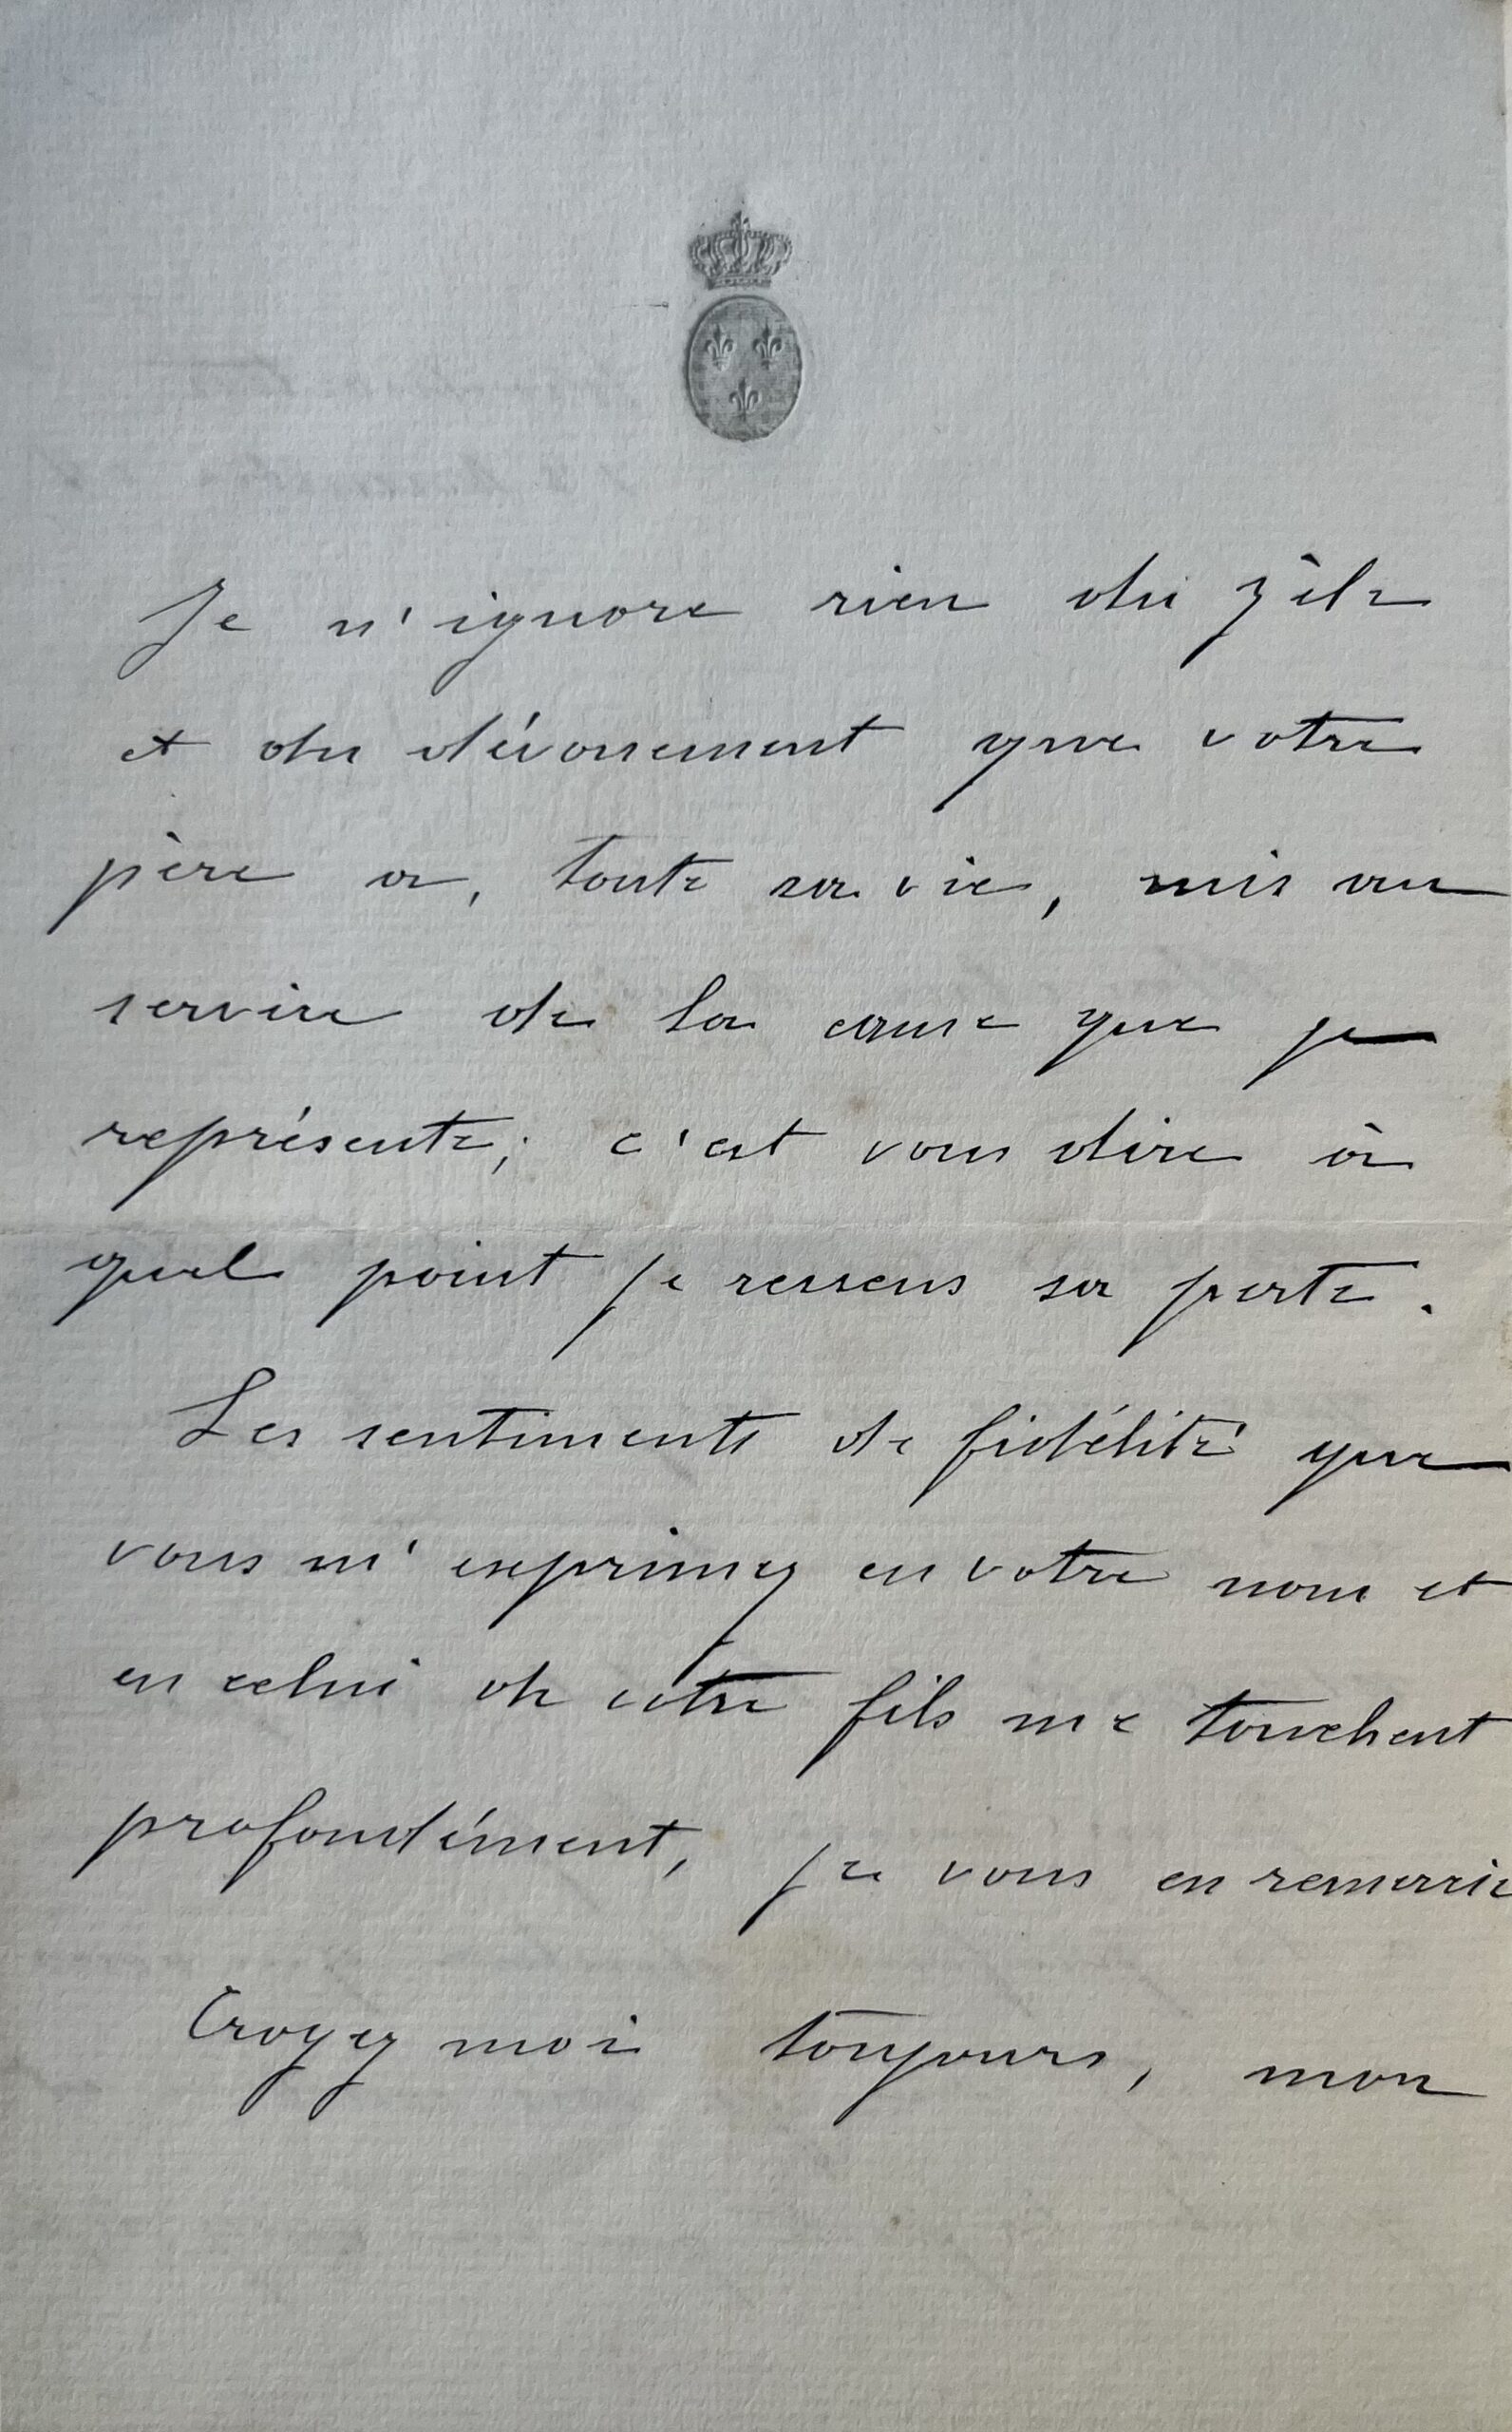 Je n'ignore rien du zèle
et du dévouement que votre
père a, toute sa vie, mis au
service de la cause que je
représente; c'est vous dire à
quel point je ressens sa perte.
Les sentiments de fidélité que
vous m'exprimez en votre nom et
en celui de votre fils me touchent
profondément, je vous en remercie
Croyez moi toujours, mon